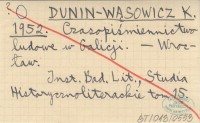 ? O DUNIN-WĄSOWICZ K.
1952. Czasopiśmiennictwo
ludowe w Galicji. — Wroc-
ław.
Inst. Bad. Lit., Studia
Historycznoliterackie tom 15.